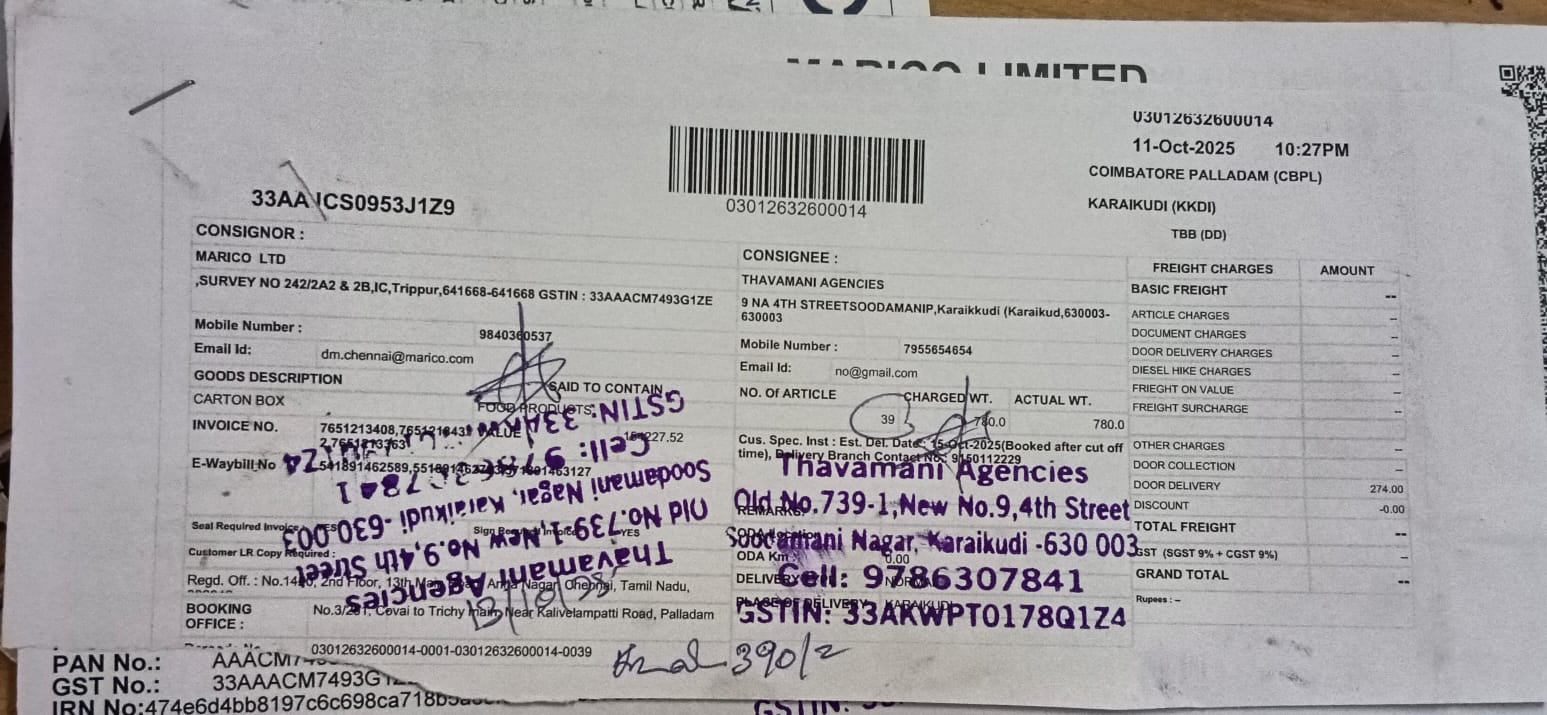 MARICO LIMITED
03012632600014
11-Oct-2025 10:27PM
COIMBATORE PALLADAM (CBPL)
KARAIKUDI (KKDI)
TBB (DD)
03012632600014
33AA CS0953J1Z9
CONSIGNOR :
MARICO LTD
,SURVEY NO 242/2A2 & 2B,IC,Trippur,641668-641668 GSTIN : 33AAACM7493G1ZE
Mobile Number : 9840360537
Email Id: dm.chennai@marico.com
GOODS DESCRIPTION SAID TO CONTAIN
CARTON BOX FOOD PRODUCTS
INVOICE NO. VALUE
E-Waybill No
Seal Required Invoice
YES
Customer LR Copy Required :
Regd. Off. : 2nd Floor, Chennai, Tamil Nadu,
BOOKING OFFICE : Covai to Trichy Near Kalivelampatti Road, Palladam
03012632600014-0001-03012632600014-0039
CONSIGNEE :
THAVAMANI AGENCIES
9 NA 4TH STREETSOODAMANIP,Karaikkudi (Karaikud,630003-
630003
Mobile Number : 7955654654
Email Id: no@gmail.com
NO. Of ARTICLE CHARGED WT. ACTUAL WT.
39 780.0 780.0
Cus. Spec. Inst : Est. Del. Date: 15-Oct-2025(Booked after cut off
time), Delivery Branch Contact No.: 9150112229
REMARKS
ODA Km 0.00
DELIVERY NORMAL
PLACE OF DELIVERY KARAIKUDI
Thavamani Agencies
Old No.739-1,New No.9,4th Street
Soodamani Nagar, Karaikudi -630 003
Cell: 9786307841
GSTIN: 33AKWPT0178Q1Z4
Thavamani Agencies
Old No.739-1,New No.9,4th Street
Soodamani Nagar, Karaikudi -630 003
Cell:
GSTIN:
390/2
FREIGHT CHARGES AMOUNT
BASIC FREIGHT --
ARTICLE CHARGES –
DOCUMENT CHARGES –
DOOR DELIVERY CHARGES –
DIESEL HIKE CHARGES –
FRIEGHT ON VALUE –
FREIGHT SURCHARGE –
OTHER CHARGES –
DOOR COLLECTION –
DOOR DELIVERY 274.00
DISCOUNT -0.00
TOTAL FREIGHT --
GST (SGST 9% + CGST 9%) –
GRAND TOTAL --
Rupees : –
PAN No.:
GST No.: 33AAACM7493G1
IRN No:474e6d4bb8197c6c698ca718b
GSTIN: